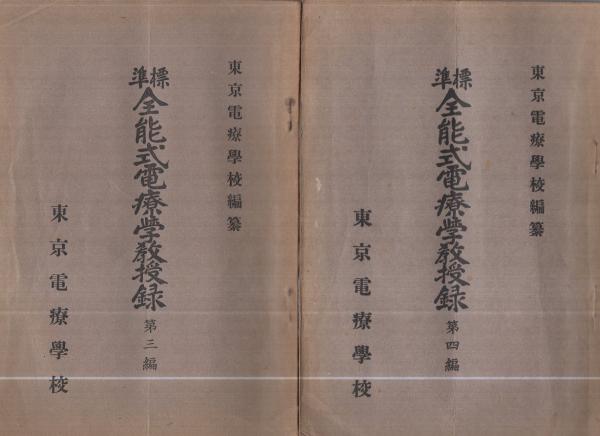 東京電療學校編纂
標準
全能式電療学教授録 第四編
東京電療學校
東京電療學校編纂
標準
全能式電療学教授録 第三編
東京電療學校